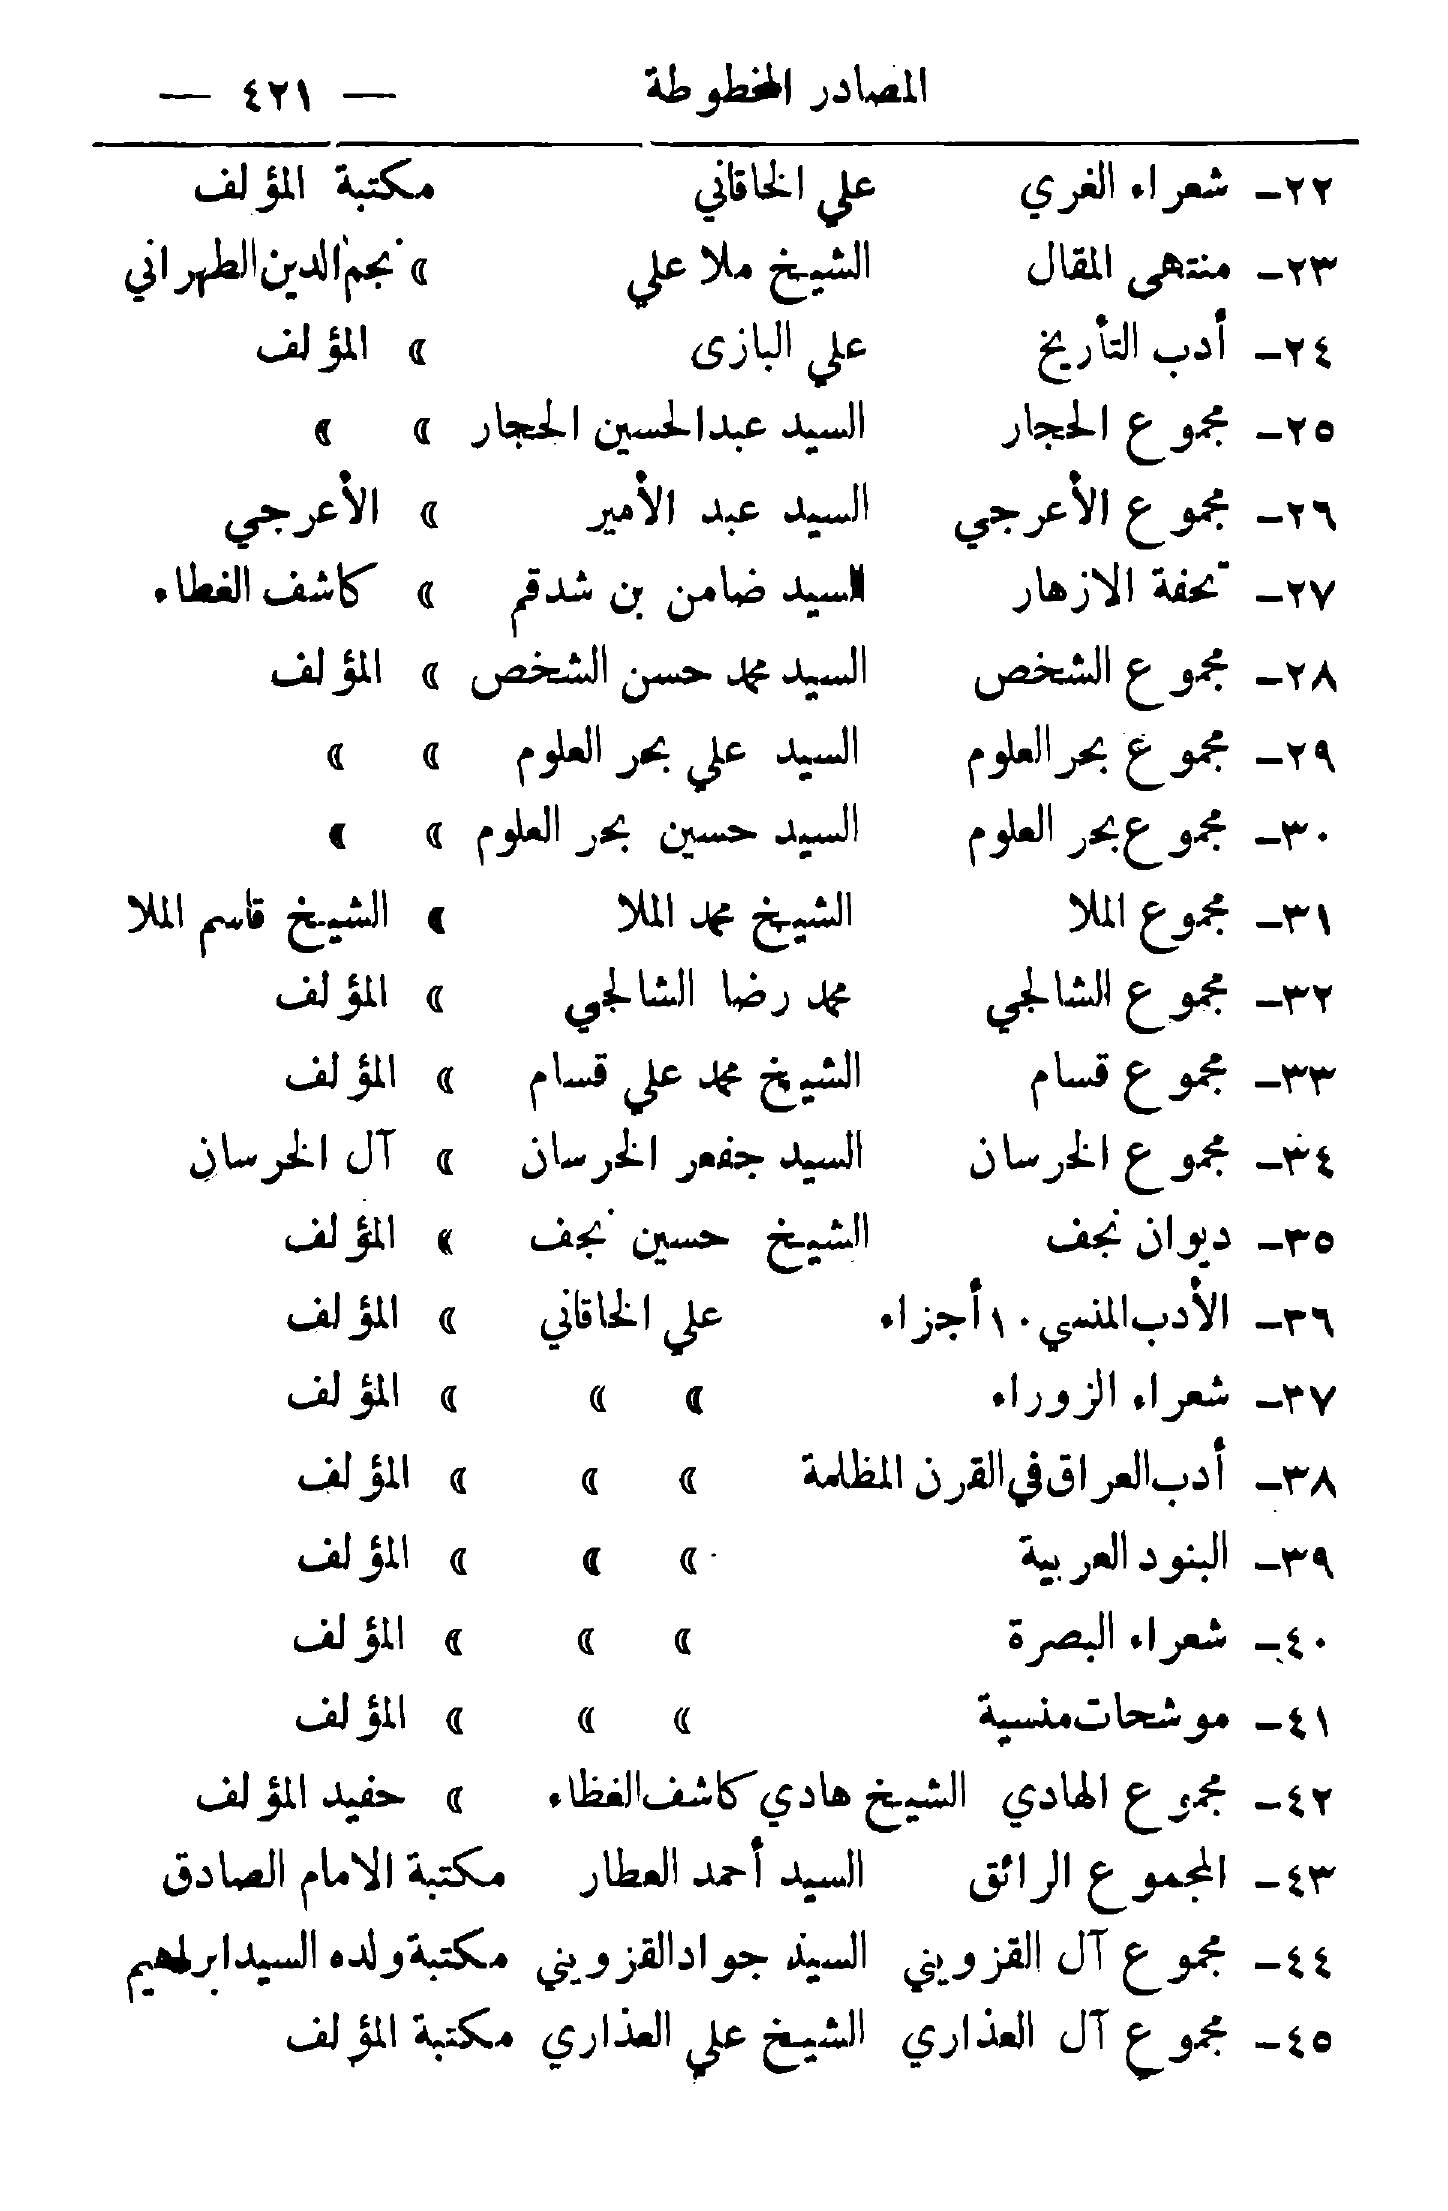 المصادر المخطوطة — ٤٢١ —
٢٢- شعراء الغري علي الخاقاني مكتبة المؤلف
٢٣- منتهى المقال الشيخ ملا علي » نجم الدين الطهراني
٢٤- أدب التأريخ علي البازى » المؤلف
٢٥- مجموع الحجار السيد عبدالحسين الحجار » »
٢٦- مجموع الأعرجي السيد عبد الأمير » الأعرجي
٢٧- تحفة الازهار السيد ضامن بن شدقم » كاشف الغطاء
٢٨- مجموع الشخص السيد محمد حسن الشخص » المؤلف
٢٩- مجموع بحر العلوم السيد علي بحر العلوم » »
٣٠- مجموع بحر العلوم السيد حسين بحر العلوم » »
٣١- مجموع الملا الشيخ محمد الملا » الشيخ قاسم الملا
٣٢- مجموع الشالجي محمد رضا الشالجي » المؤلف
٣٣- مجموع قسام الشيخ محمد علي قسام » المؤلف
٣٤- مجموع الخرسان السيد جفعر الخرسان » آل الخرسان
٣٥- ديوان نجف الشيخ حسين نجف » المؤلف
٣٦- الأدب المنسي ١٠ أجزاء علي الخاقاني » المؤلف
٣٧- شعراء الزوراء » » » المؤلف
٣٨- أدب العراق في القرن المظلمة » » » المؤلف
٣٩- البنود العربية » » » المؤلف
٤٠- شعراء البصرة » » » المؤلف
٤١- موشحات منسية » » » المؤلف
٤٢- مجموع الهادي الشيخ هادي كاشف الغظاء » حفيد المؤلف
٤٣- المجموع الرائق السيد أحمد العطار مكتبة الامام الصادق
٤٤- مجموع آل القزويني السيد جواد القزويني مكتبة ولده السيد ابراهيم
٤٥- مجموع آل العذاري الشيخ علي العذاري مكتبة المؤلف